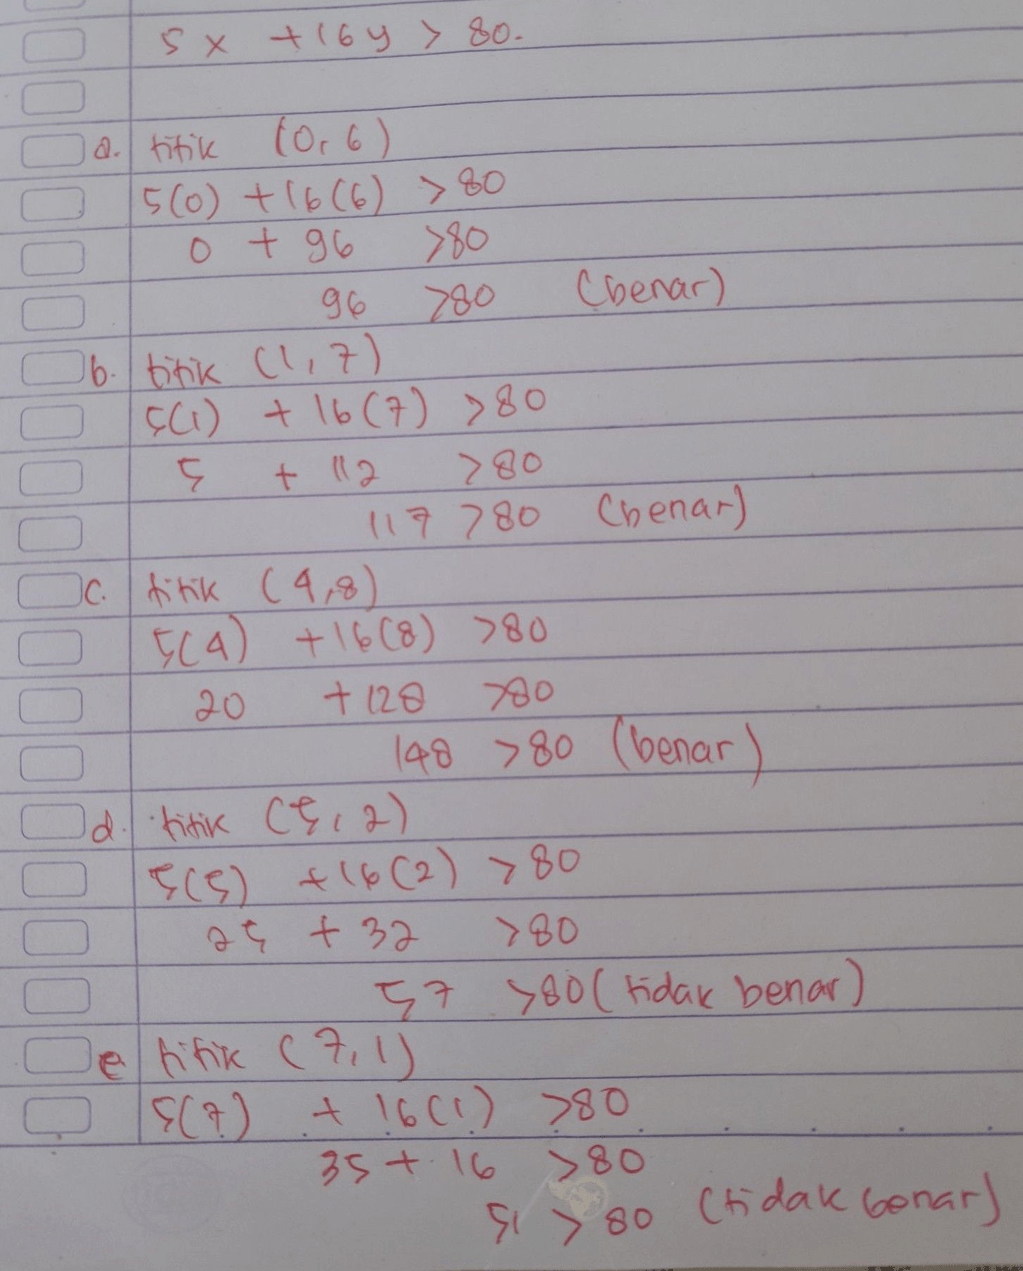 5x + 16y > 80.
a. titik (0, 6)
5(0) + 16(6) > 80
0 + 96 > 80
96 > 80 (benar)
b. titik (1, 7)
5(1) + 16(7) > 80
5 + 112 > 80
117 > 80 (benar)
c. titik (4,8)
5(4) + 16(8) > 80
20 + 128 > 80
148 > 80 (benar)
d. titik (5, 2)
5(5) + 16(2) > 80
25 + 32 > 80
57 > 80 (tidak benar)
e titik (7, 1)
5(7) + 16(1) > 80
35 + 16 > 80
51 > 80 (tidak benar)